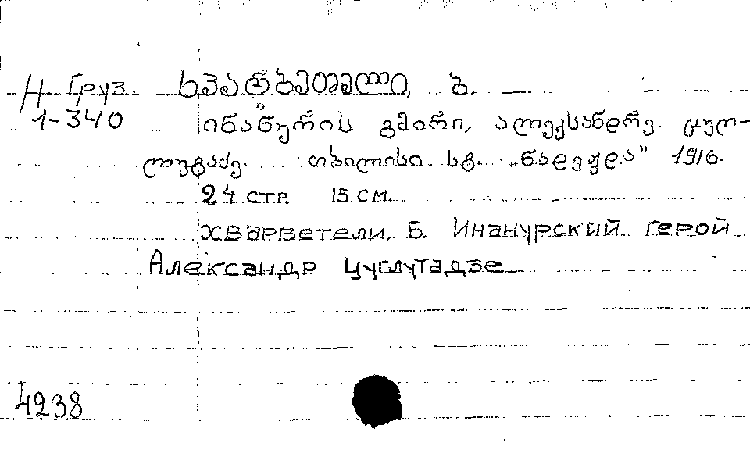 Н Груз ხვარბეთელი, ბ.
1-340 ინანურის გმირი, ალექსანდრე ცულ-
ლუტაძე. თბილისი. სტ. „ნადეჟდა" 1916.
24 стр 15 см.
Хварбетели, Б. Инанурский герой
Александр Цулутадзе
4238